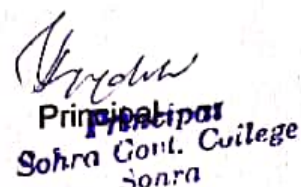 Principal
Principal
Sohra Govt. College
Sohra